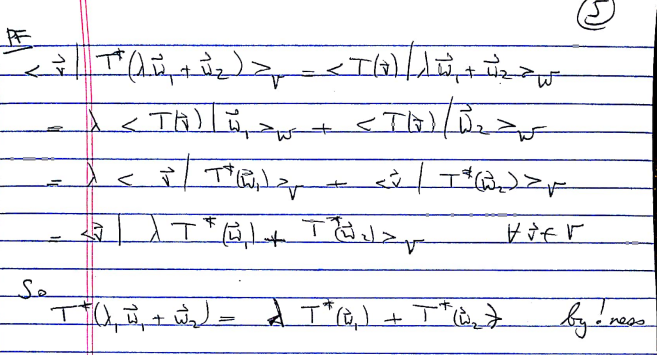 5
PF
< v⃗ | T*(λw⃗₁ + w⃗₂) >_V = < T(v⃗) | λw⃗₁ + w⃗₂ >_W
= λ < T(v⃗) | w⃗₁ >_W + < T(v⃗) | w⃗₂ >_W
= λ < v⃗ | T*(w⃗₁) >_V + < v⃗ | T*(w⃗₂) >_V
= < v⃗ | λ T*(w⃗₁) + T*(w⃗₂) >_V ∀ v⃗ ∈ V
So
T*(λ₁ w⃗₁ + w⃗₂) = λ T*(w⃗₁) + T*(w⃗₂) by !ness